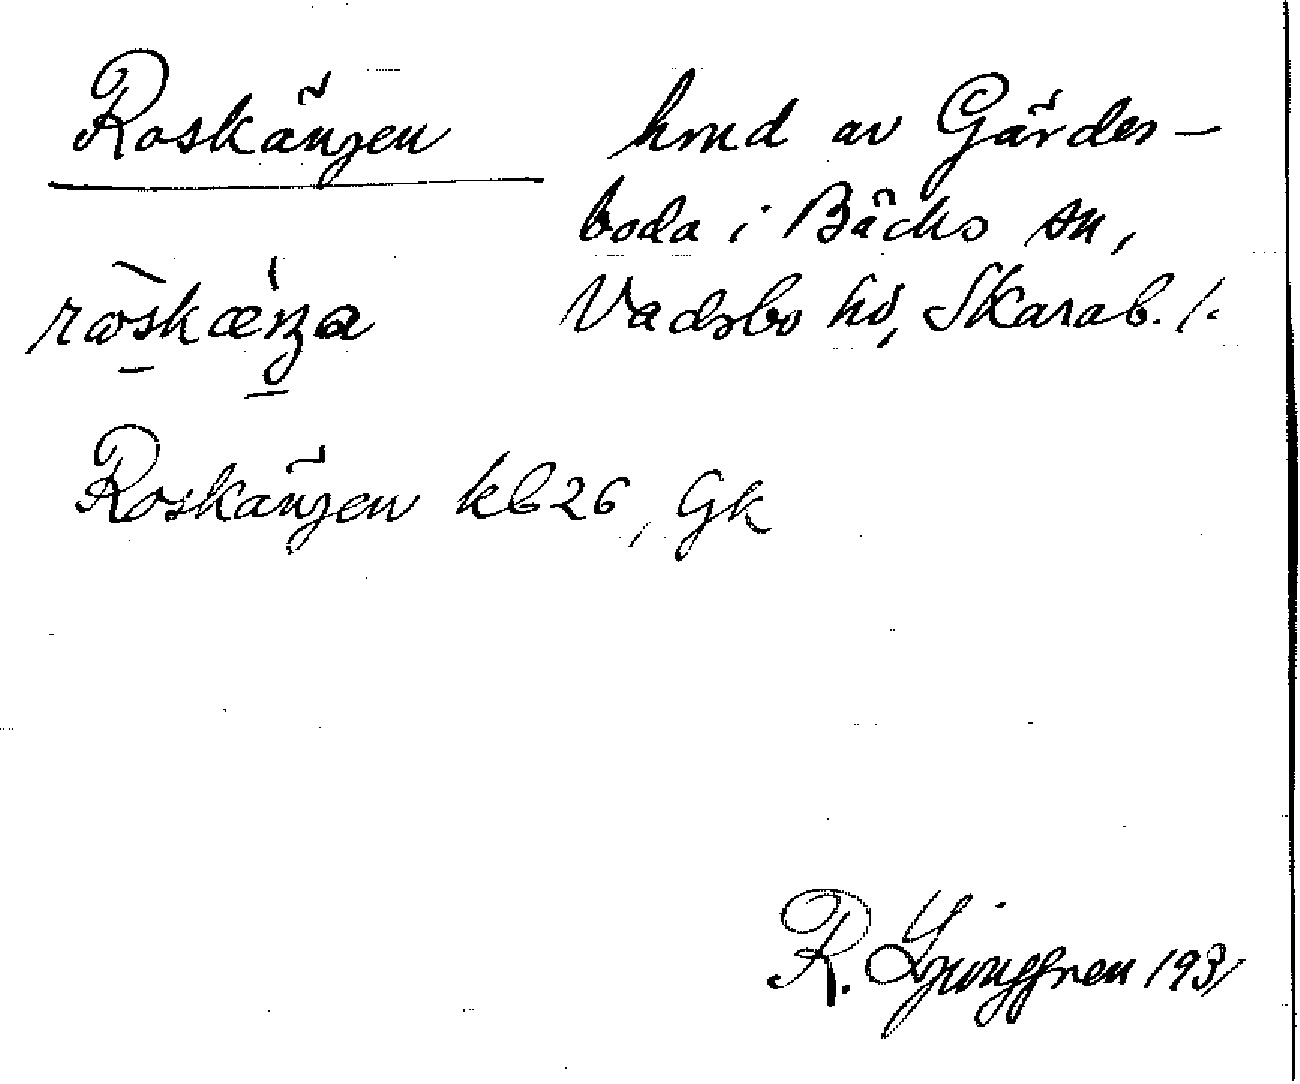 Roskängen
hmd av Gärdes-
boda i Bäcks sn,
Vadsbo hd, Skarab. l.
Roskängen kb 26, Gk
R. Ljunggren 1931